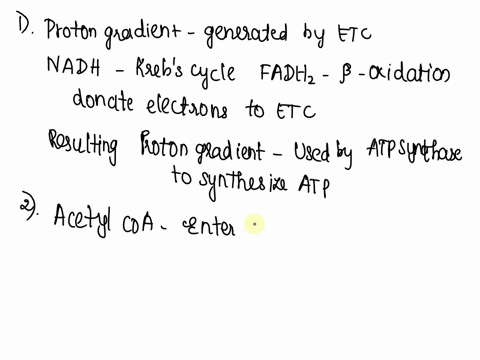 1). Proton gradient - generated by ETC
NADH - Kreb's cycle FADH2 - β-oxidation
donate electrons to ETC
Resulting Proton gradient - Used by ATP synthase
to synthesize ATP
2). Acetyl COA - enter